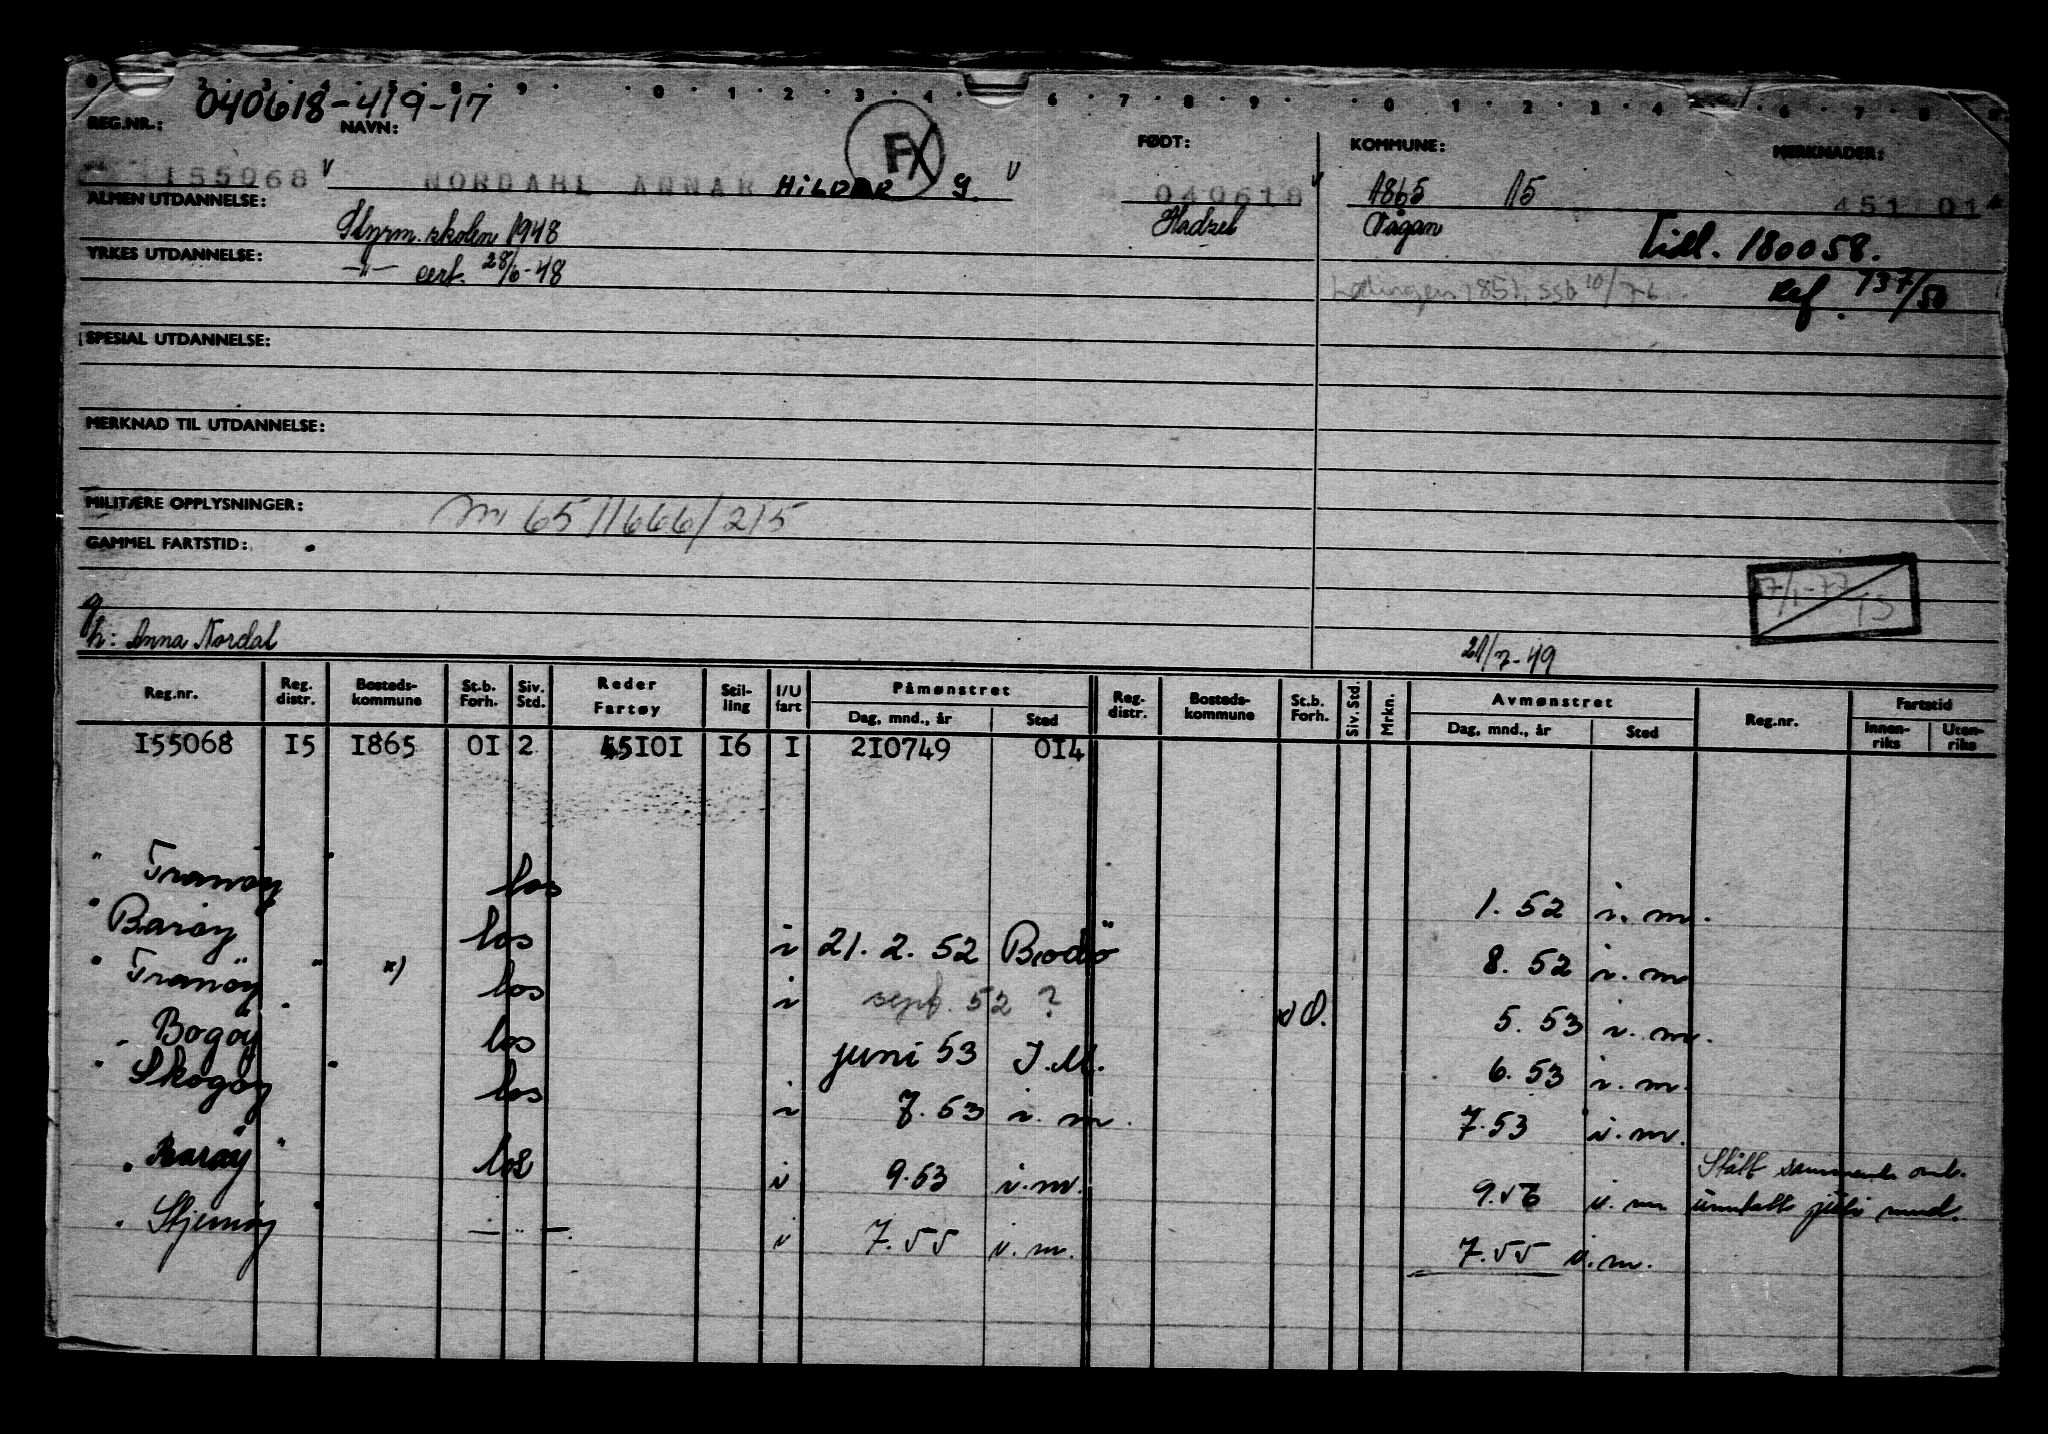 040618-419-17
REG.NR.: NAVN: FØDT: KOMMUNE: MERKNADER:
155068 NORDAHL HILDAR G. 040618 1865 15 451101
FX
ALMEN UTDANNELSE: Styrm.skolen 1948 Hadsel Vågan Tidl. 180058.
YRKES UTDANNELSE: —"— cert. 28/6-48 Lødingen 1851, ssb 10/76 Ref. 737/50
SPESIAL UTDANNELSE:
MERKNAD TIL UTDANNELSE:
MILITÆRE OPPLYSNINGER: 65/1666/215
GAMMEL FARTSTID:
7/1-77
g
h: Anna Nordal 21/7-49
Reg.nr. Reg. distr. Bosteds-kommune St.b. Forh. Siv. Std. Reder Fartøy Stil-ling I/U fart Påmønstret Reg. distr. Bosteds-kommune St.b. Forh. Siv. Std. Mrkn. Avmønstret Reg.nr. Fartstid
Dag, mnd., år Sted Dag, mnd., år Sted Innen-riks Uten-riks
I55068 I5 I865 0I 2 45I0I I6 I 2I0749 0I4
" Tranøy " los 1. 52 i. m.
" Barøy los i 21. 2. 52 Bodö 8. 52 i. m
" Tranöy " x) los i sept. 52 ? x) O. 5. 53 i. m.
Bogøy " los juni 53 I.M. 6. 53 i. m.
" Skogøy " los i 7. 53 i. m. 7.53 i. m.
" Barøy " los i 9.53 i.m. 9.56 i. m Stått sammenh. omb.
unntatt juli mnd.
" Stjernøy " — " —. i 7.55 i.m. 7.55 i.m.